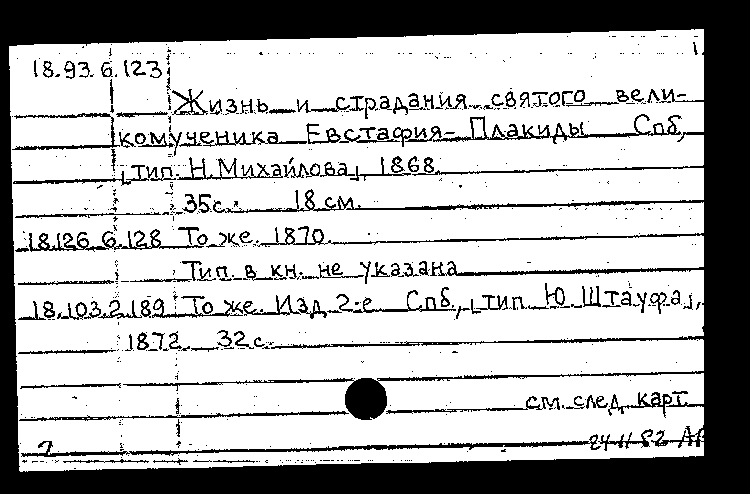 1.
18.93.6.123
Жизнь и страдания святого вели-
комученика Евстафия-Плакиды Спб,
[тип. Н. Михайлова], 1868.
35с. 18 см.
18.126.6.128 То же. 1870.
Тип. в кн. не указана
18.103.2.189 То же. Изд. 2-е Спб., [тип. Ю. Штауфа],
1872. 32 с.
см. след. карт.
24 11 82